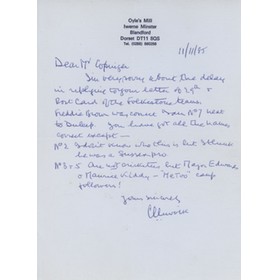 Oyle's Mill
Iwerne Minster
Blandford
Dorset DT11 8QS
Tel.
11/11/85
Dear Mr Copinger
I'm very sorry about the delay
in replying to your letter of 29th &
Post Card of the Folkestone team.
Freddie Brown was correct from No 7 next
to Dunlop. You have got all the names
correct except —
No 2 I don't know who this is but I think
he was a Sussex pro
No 3 & 5 Are not cricketers but Major Edwards
& Maurice — "Me Too" camp
followers!
Yours sincerely